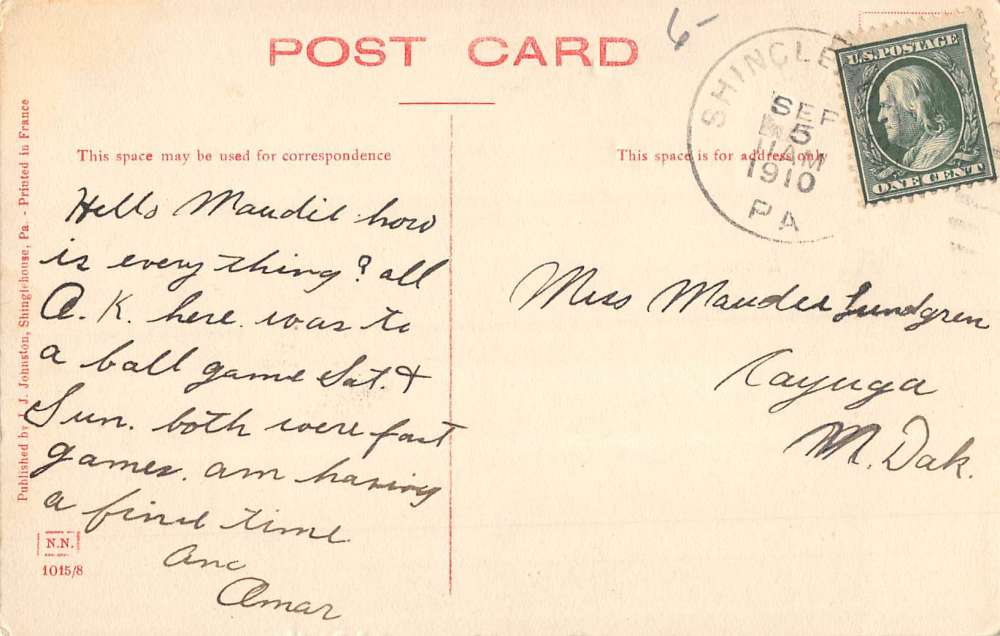 POST CARD
6-
SHINGLE
SEP
5
11 AM
1910
PA
U.S. POSTAGE
ONE CENT
This space may be used for correspondence
This space is for address only
Hello Maudie how
is every thing? all
O.K. here. was to
a ball game Sat. &
Sun. both were fast
games. am having
a fine time
Omar
Miss Maudee Lundgren
Cayuga
N. Dak.
Published by J. J. Johnston, Shinglehouse, Pa. - Printed in France
N.N.
1015/8